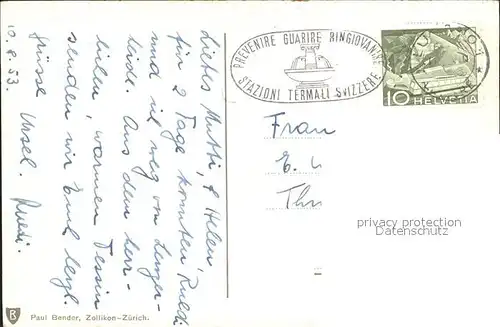 10.8.53
Liebes Mutti, & Helen,
für 2 Tage konnten Ruedi
und ich weg vom Lenzer-
heide. Aus dem herr-
lichen, warmen Tessin
senden wir Euch herzl.
Grüsse Ursel. Ruedi.
PREVENIRE GUARIRE RINGIOVANIRE
STAZIONI TERMALI SVIZZERE
10 HELVETIA
Frau
E.
privacy protection
for Postcards
Paul Bender, Zollikon-Zürich.